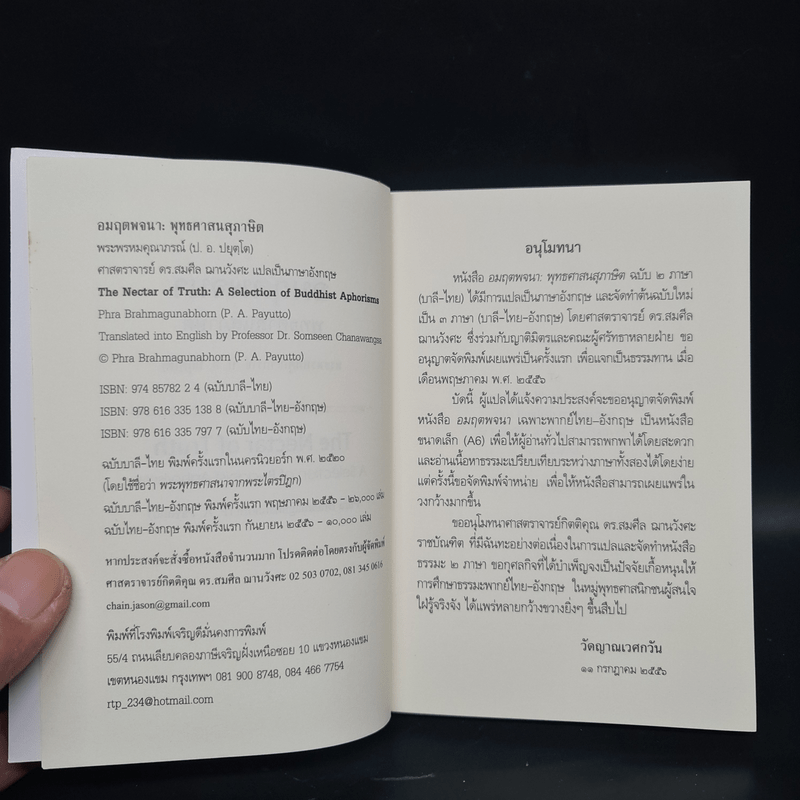 อมฤตพจนา: พุทธศาสนสุภาษิต
พระพรหมคุณาภรณ์ (ป. อ. ปยุตฺโต)
ศาสตราจารย์ ดร.สมศีล ฌานวังศะ แปลเป็นภาษาอังกฤษ
The Nectar of Truth: A Selection of Buddhist Aphorisms
Phra Brahmagunabhorn (P. A. Payutto)
Translated into English by Professor Dr. Somseen Chanawangsa
© Phra Brahmagunabhorn (P. A. Payutto)
ISBN: 974 85782 2 4 (ฉบับบาลี-ไทย)
ISBN: 978 616 335 138 8 (ฉบับบาลี-ไทย-อังกฤษ)
ISBN: 978 616 335 797 7 (ฉบับไทย-อังกฤษ)
ฉบับบาลี-ไทย พิมพ์ครั้งแรกในนครนิวยอร์ก พ.ศ. ๒๕๒๐
(โดยใช้ชื่อว่า พระพุทธศาสนาจากพระไตรปิฎก)
ฉบับบาลี-ไทย-อังกฤษ พิมพ์ครั้งแรก พฤษภาคม ๒๕๕๖ - ๒๖,๐๐๐ เล่ม
ฉบับไทย-อังกฤษ พิมพ์ครั้งแรก กันยายน ๒๕๕๖ - ๑๐,๐๐๐ เล่ม
หากประสงค์จะสั่งซื้อหนังสือจำนวนมาก โปรดติดต่อโดยตรงกับผู้จัดพิมพ์
ศาสตราจารย์กิตติคุณ ดร.สมศีล ฌานวังศะ 02 503 0702, 081 345 0616
chain.jason@gmail.com
พิมพ์ที่โรงพิมพ์เจริญดีมั่นคงการพิมพ์
55/4 ถนนเลียบคลองภาษีเจริญฝั่งเหนือซอย 10 แขวงหนองแขม
เขตหนองแขม กรุงเทพฯ 081 900 8748, 084 466 7754
rtp_234@hotmail.com
อนุโมทนา
หนังสือ อมฤตพจนา: พุทธศาสนสุภาษิต ฉบับ ๒ ภาษา
(บาลี-ไทย) ได้มีการแปลเป็นภาษาอังกฤษ และจัดทำต้นฉบับใหม่
เป็น ๓ ภาษา (บาลี-ไทย-อังกฤษ) โดยศาสตราจารย์ ดร.สมศีล
ฌานวังศะ ซึ่งร่วมกับญาติมิตรและคณะผู้ศรัทธาหลายฝ่าย ขอ
อนุญาตจัดพิมพ์เผยแพร่เป็นครั้งแรก เพื่อแจกเป็นธรรมทาน เมื่อ
เดือนพฤษภาคม พ.ศ. ๒๕๕๖
บัดนี้ ผู้แปลได้แจ้งความประสงค์จะขออนุญาตจัดพิมพ์
หนังสือ อมฤตพจนา เฉพาะพากย์ไทย-อังกฤษ เป็นหนังสือ
ขนาดเล็ก (A6) เพื่อให้ผู้อ่านทั่วไปสามารถพกพาได้โดยสะดวก
และอ่านเนื้อหาธรรมะเปรียบเทียบระหว่างภาษาทั้งสองได้โดยง่าย
แต่ครั้งนี้ขอจัดพิมพ์จำหน่าย เพื่อให้หนังสือสามารถเผยแพร่ใน
วงกว้างมากขึ้น
ขออนุโมทนาศาสตราจารย์กิตติคุณ ดร.สมศีล ฌานวังศะ
ราชบัณฑิต ที่มีฉันทะอย่างต่อเนื่องในการแปลและจัดทำหนังสือ
ธรรมะ ๒ ภาษา ขอกุศลกิจที่ได้บำเพ็ญจงเป็นปัจจัยเกื้อหนุนให้
การศึกษาธรรมะพากย์ไทย-อังกฤษ ในหมู่พุทธศาสนิกชนผู้สนใจ
ใฝ่รู้จริงจัง ได้แพร่หลายกว้างขวางยิ่งๆ ขึ้นสืบไป
วัดญาณเวศกวัน
๑๑ กรกฎาคม ๒๕๕๖